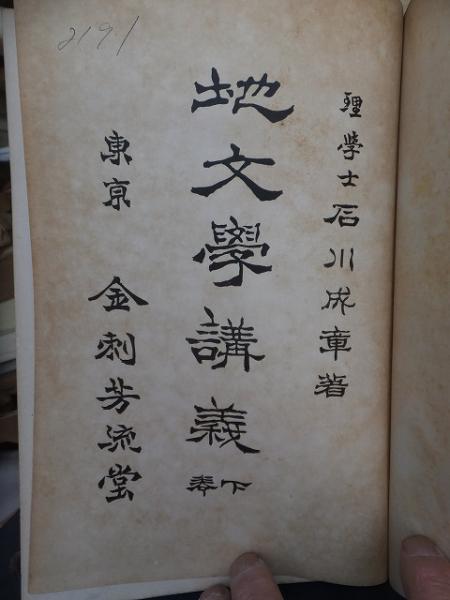 2191
理學士石川成章著
地文學講義
下巻
東京 金刺芳流堂